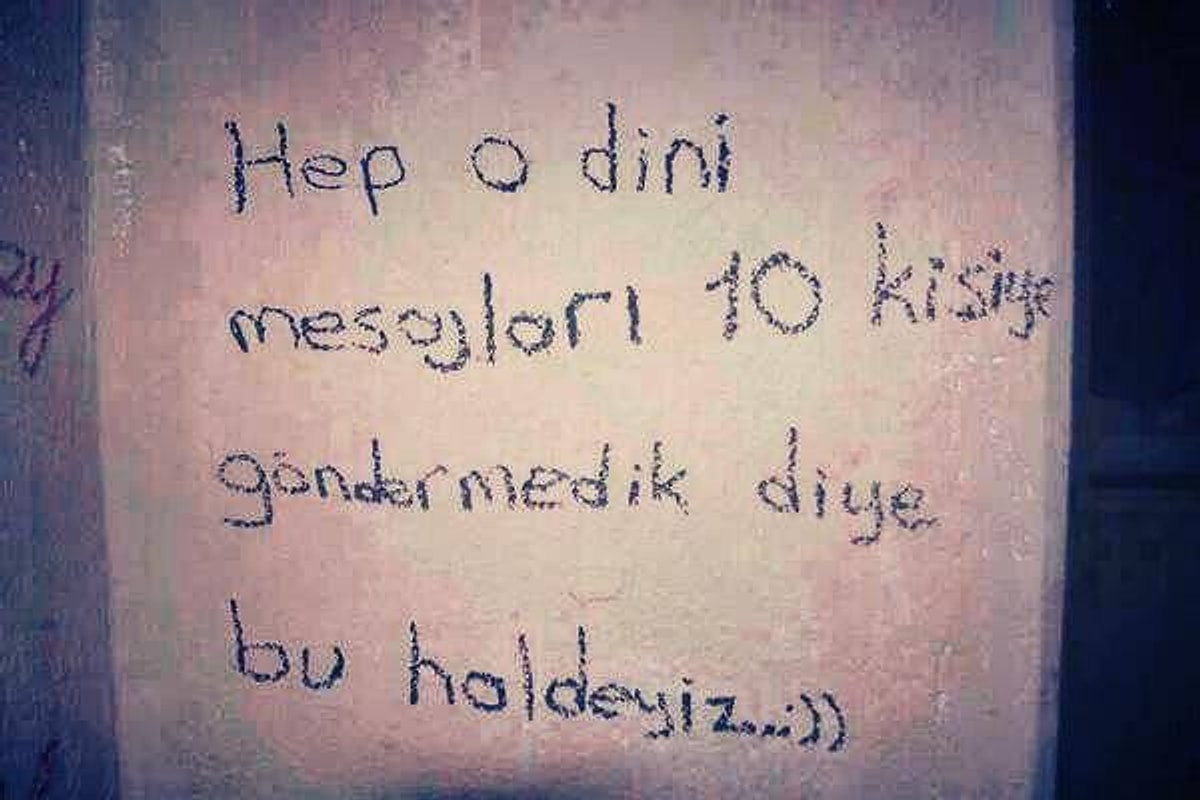 Hep o dini
mesajları 10 kisiye
göndermedik diye
bu haldeyiz...:))